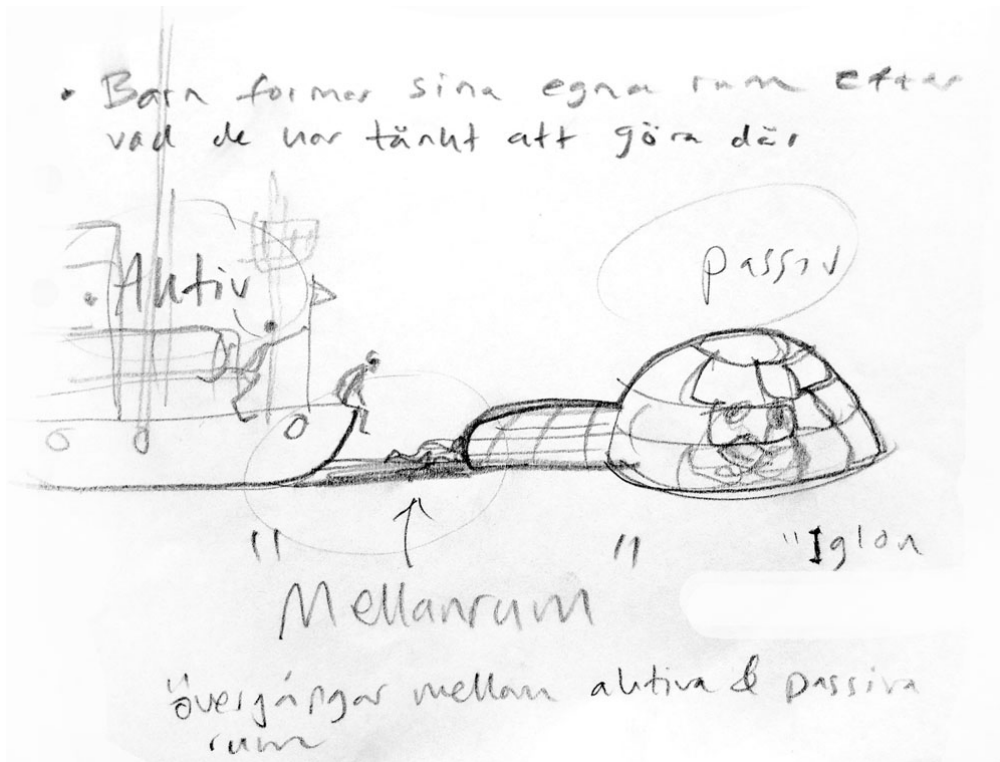 • Barn formar sina egna rum efter
vad de har tänkt att göra där
• Aktiv
passiv
"Mellanrum"
"Iglon
övergångar mellan aktiva & passiva
rum